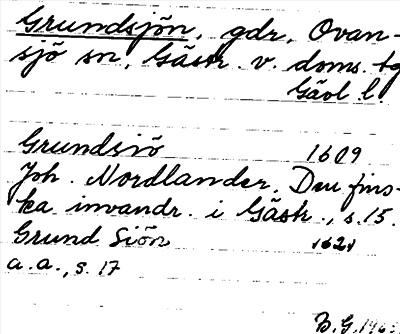 Grundsjön, gdr, Ovan-
sjö sn, Gästr. v. doms. tg
Gävl. l.
Grundsiö 1609
Joh. Nordlander, Den fins-
ka invandr. i Gästr., s. 15.
Grund Siön 1621
a. a., s. 17
B. G.